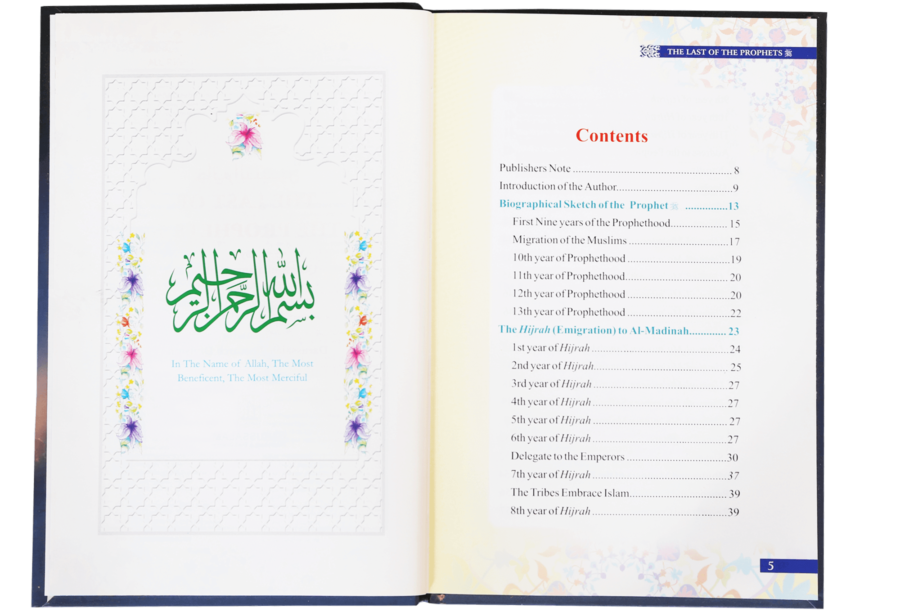 بسم الله الرحمن الرحيم
In The Name of Allah, The Most
Beneficent, The Most Merciful
THE LAST OF THE PROPHETS ﷺ
Contents
Publishers Note ................................................ 8
Introduction of the Author.......................................... 9
Biographical Sketch of the Prophet ﷺ ...............13
First Nine years of the Prophethood.................... 15
Migration of the Muslims .................................... 17
10th year of Prophethood .................................... 19
11th year of Prophethood..................................... 20
12th year of Prophethood .................................... 20
13th year of Prophethood .................................... 22
The Hijrah (Emigration) to Al-Madinah............. 23
1st year of Hijrah ................................................ 24
2nd year of Hijrah................................................ 25
3rd year of Hijrah ................................................ 27
4th year of Hijrah ................................................ 27
5th year of Hijrah ................................................ 27
6th year of Hijrah ................................................ 27
Delegate to the Emperors .................................... 30
7th year of Hijrah ................................................ 37
The Tribes Embrace Islam................................... 39
8th year of Hijrah ................................................ 39
5